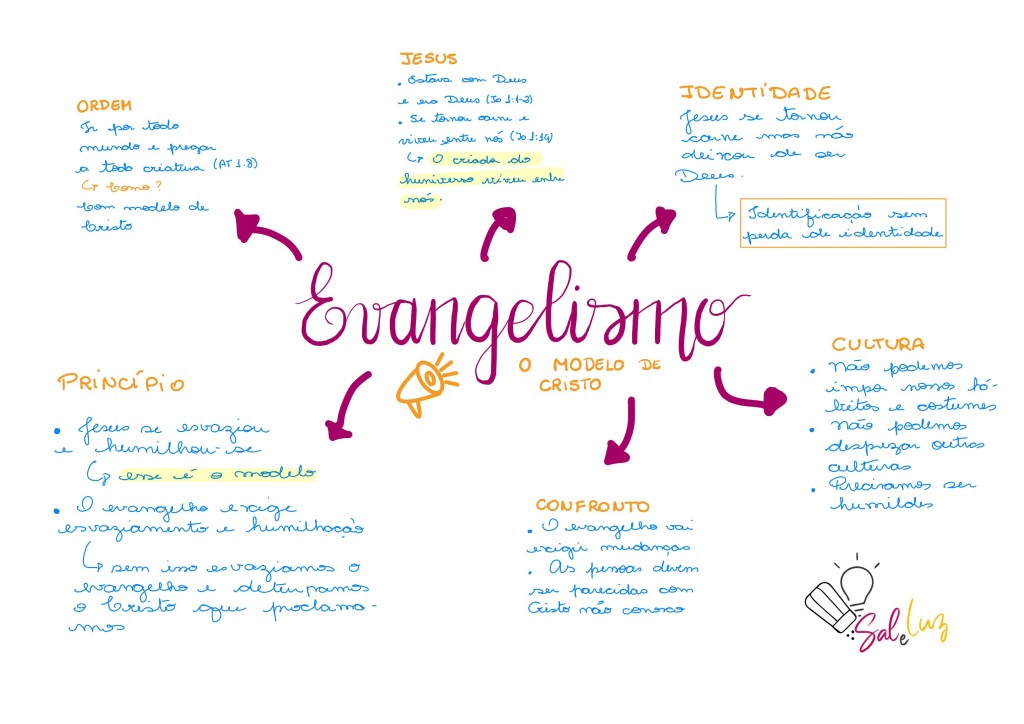 ORDEM
Ir por todo
mundo e pregar
a toda criatura (AT 1.8)
↳ Como?
Com modelo de
Cristo
JESUS
• Estava com Deus
e era Deus (Jo 1:1-2)
• Se tornou carne e
viveu entre nós (Jo 1:14)
↳ O criador do
huniverso viveu entre
nós.
IDENTIDADE
Jesus se tornou
carne mas não
deixou de ser
Deus.
↳ Identificação sem
perda de identidade
Evangelismo
O MODELO DE
CRISTO
PRINCÍPIO
• Jesus se esvaziou
e humilhou-se
↳ esse é o modelo
• O evangelho exige
esvaziamento e humilhação
↳ sem isso esvaziamos o
evangelho e deturpamos
o Cristo que proclama-
mos
CONFRONTO
• O evangelho vai
exigir mudanças
• As pessoas devem
ser parecidas com
Cristo não conosco
CULTURA
• Não podemos
impor nossos há-
bitos e costumes
• Não podemos
desprezar outras
culturas
• Precisamos ser
humildes
Sal e Luz